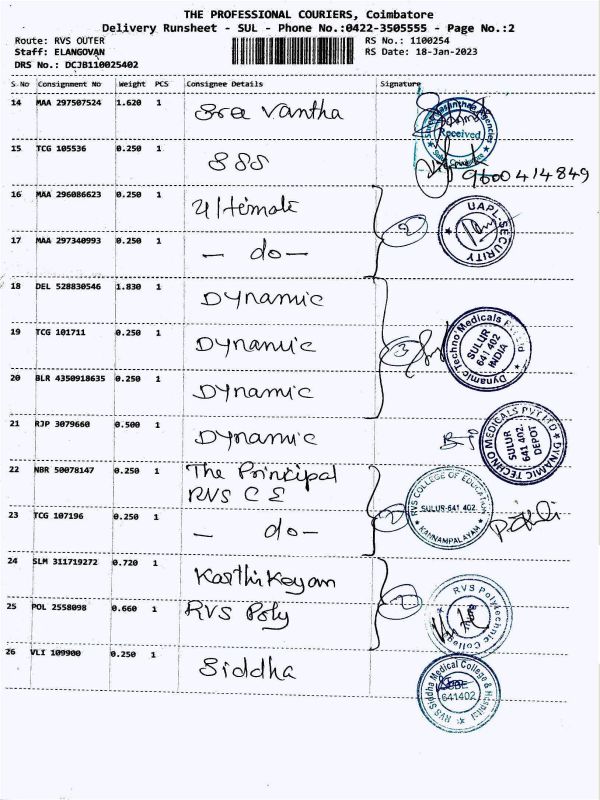 THE PROFESSIONAL COURIERS, Coimbatore
Delivery Runsheet - SUL - Phone No.:0422-3505555 - Page No.:2
Route: RVS OUTER
RS No.: 1100254
Staff: ELANGOVAN
RS Date: 18-Jan-2023
DRS No.: DCJB110025402
S. No Consignment No Weight PCS Consignee Details Signature
14 MAA 297507524 1.620 1 Sree Vantha
Received
15 TCG 105536 0.250 1 SSS
9600414849
16 MAA 296086623 0.250 1 Ultimate
UAPL. SECURITY
17 MAA 297340993 0.250 1 — do —
18 DEL 528830546 1.830 1 Dynamic
19 TCG 101711 0.250 1 Dynamic
3
Dynamic Techno Medicals Pvt Ltd
SULUR
641 402
INDIA
20 BLR 4350918635 0.250 1 Dynamic
21 RJP 3079660 0.500 1 Dynamic
DYNAMIC TECHNO MEDICALS PVT LTD
SULUR
641 402.
DEPOT
22 NBR 50078147 0.250 1 The Principal
RVS C E
RVS COLLEGE OF EDUCATION
SULUR-641 402.
KANNAMPALAYAM
23 TCG 107196 0.250 1 — do —
24 SLM 311719272 0.720 1 Karthikeyan
25 POL 2558098 0.660 1 RVS Poly
RVS Polytechnic College
26 VLI 109900 0.250 1 Siddha
RVS Siddha Medical College & Hospital
641402